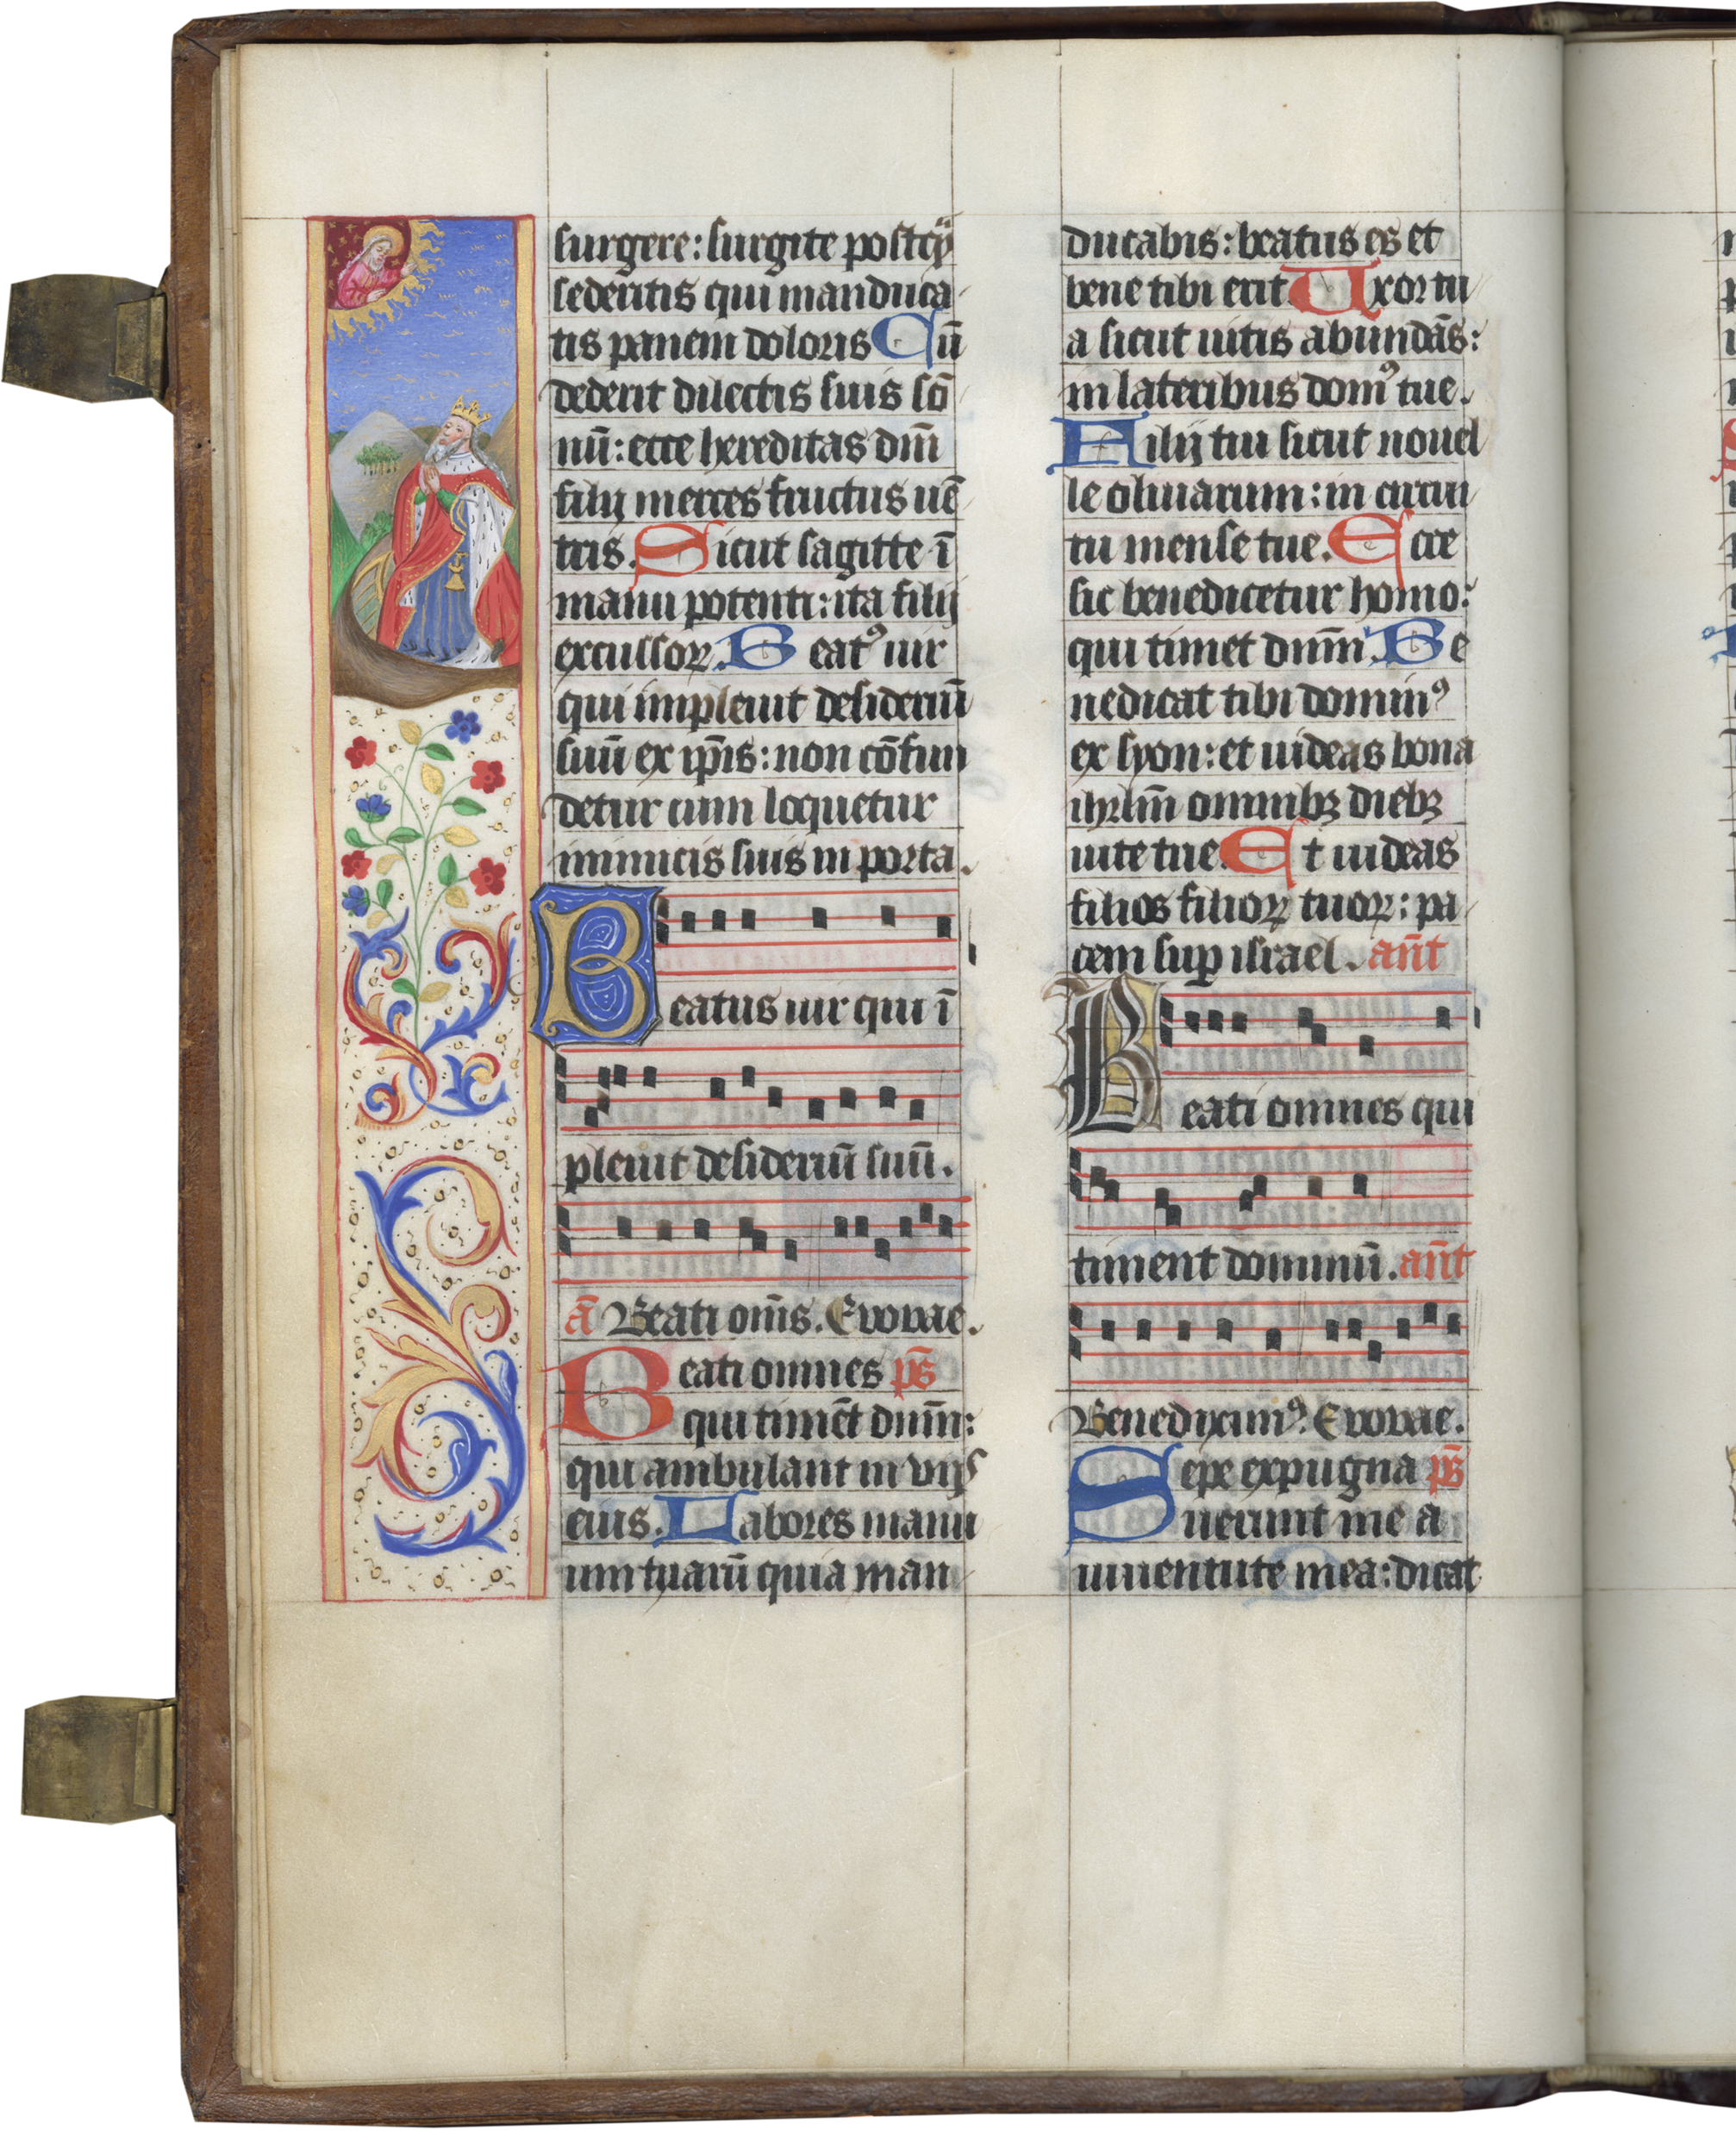 surgere: surgite postqȝ
sedentis qui manduca
tis panem doloris Cū
dederit dilectis suis sō
nū: ecce hereditas dnī
filij merces fructus uē
tris. Sicut sagitte ī
manu potenti: ita filij
excussoꝝ. Beatꝰ uir
qui impleuit desideriū
suū ex ip̄is: non cōfun
detur cum loquetur
inimicis suis in porta.
Beatus uir qui ī
pleuit desideriū suū.
ā Beati om̄s. Evovae.
Beati omnes ps̄
qui timēt dnm̄:
qui ambulant in vijs
eius. Labores manu
um tuarū quia man
ducabis: beatus es et
bene tibi erit. Uxor tu
a sicut uitis abundās:
in lateribus domꝰ tue.
Filij tui sicut nouel
le oliuarum: in circui
tu mense tue. Ecce
sic benedicetur homo:
qui timet dnm̄. Be
nedicat tibi dominꝰ
ex syon: et uideas bona
ihrlm̄ omnibꝫ diebꝫ
uite tue. Et uideas
filios filioꝝ tuoꝝ: pa
cem suꝑ israel. an̄t
Beati omnes qui
timent dominū. an̄t
Benediximꝰ. Evovae.
Sepe expugna ps̄
uerunt me a
iuuentute mea: dicat